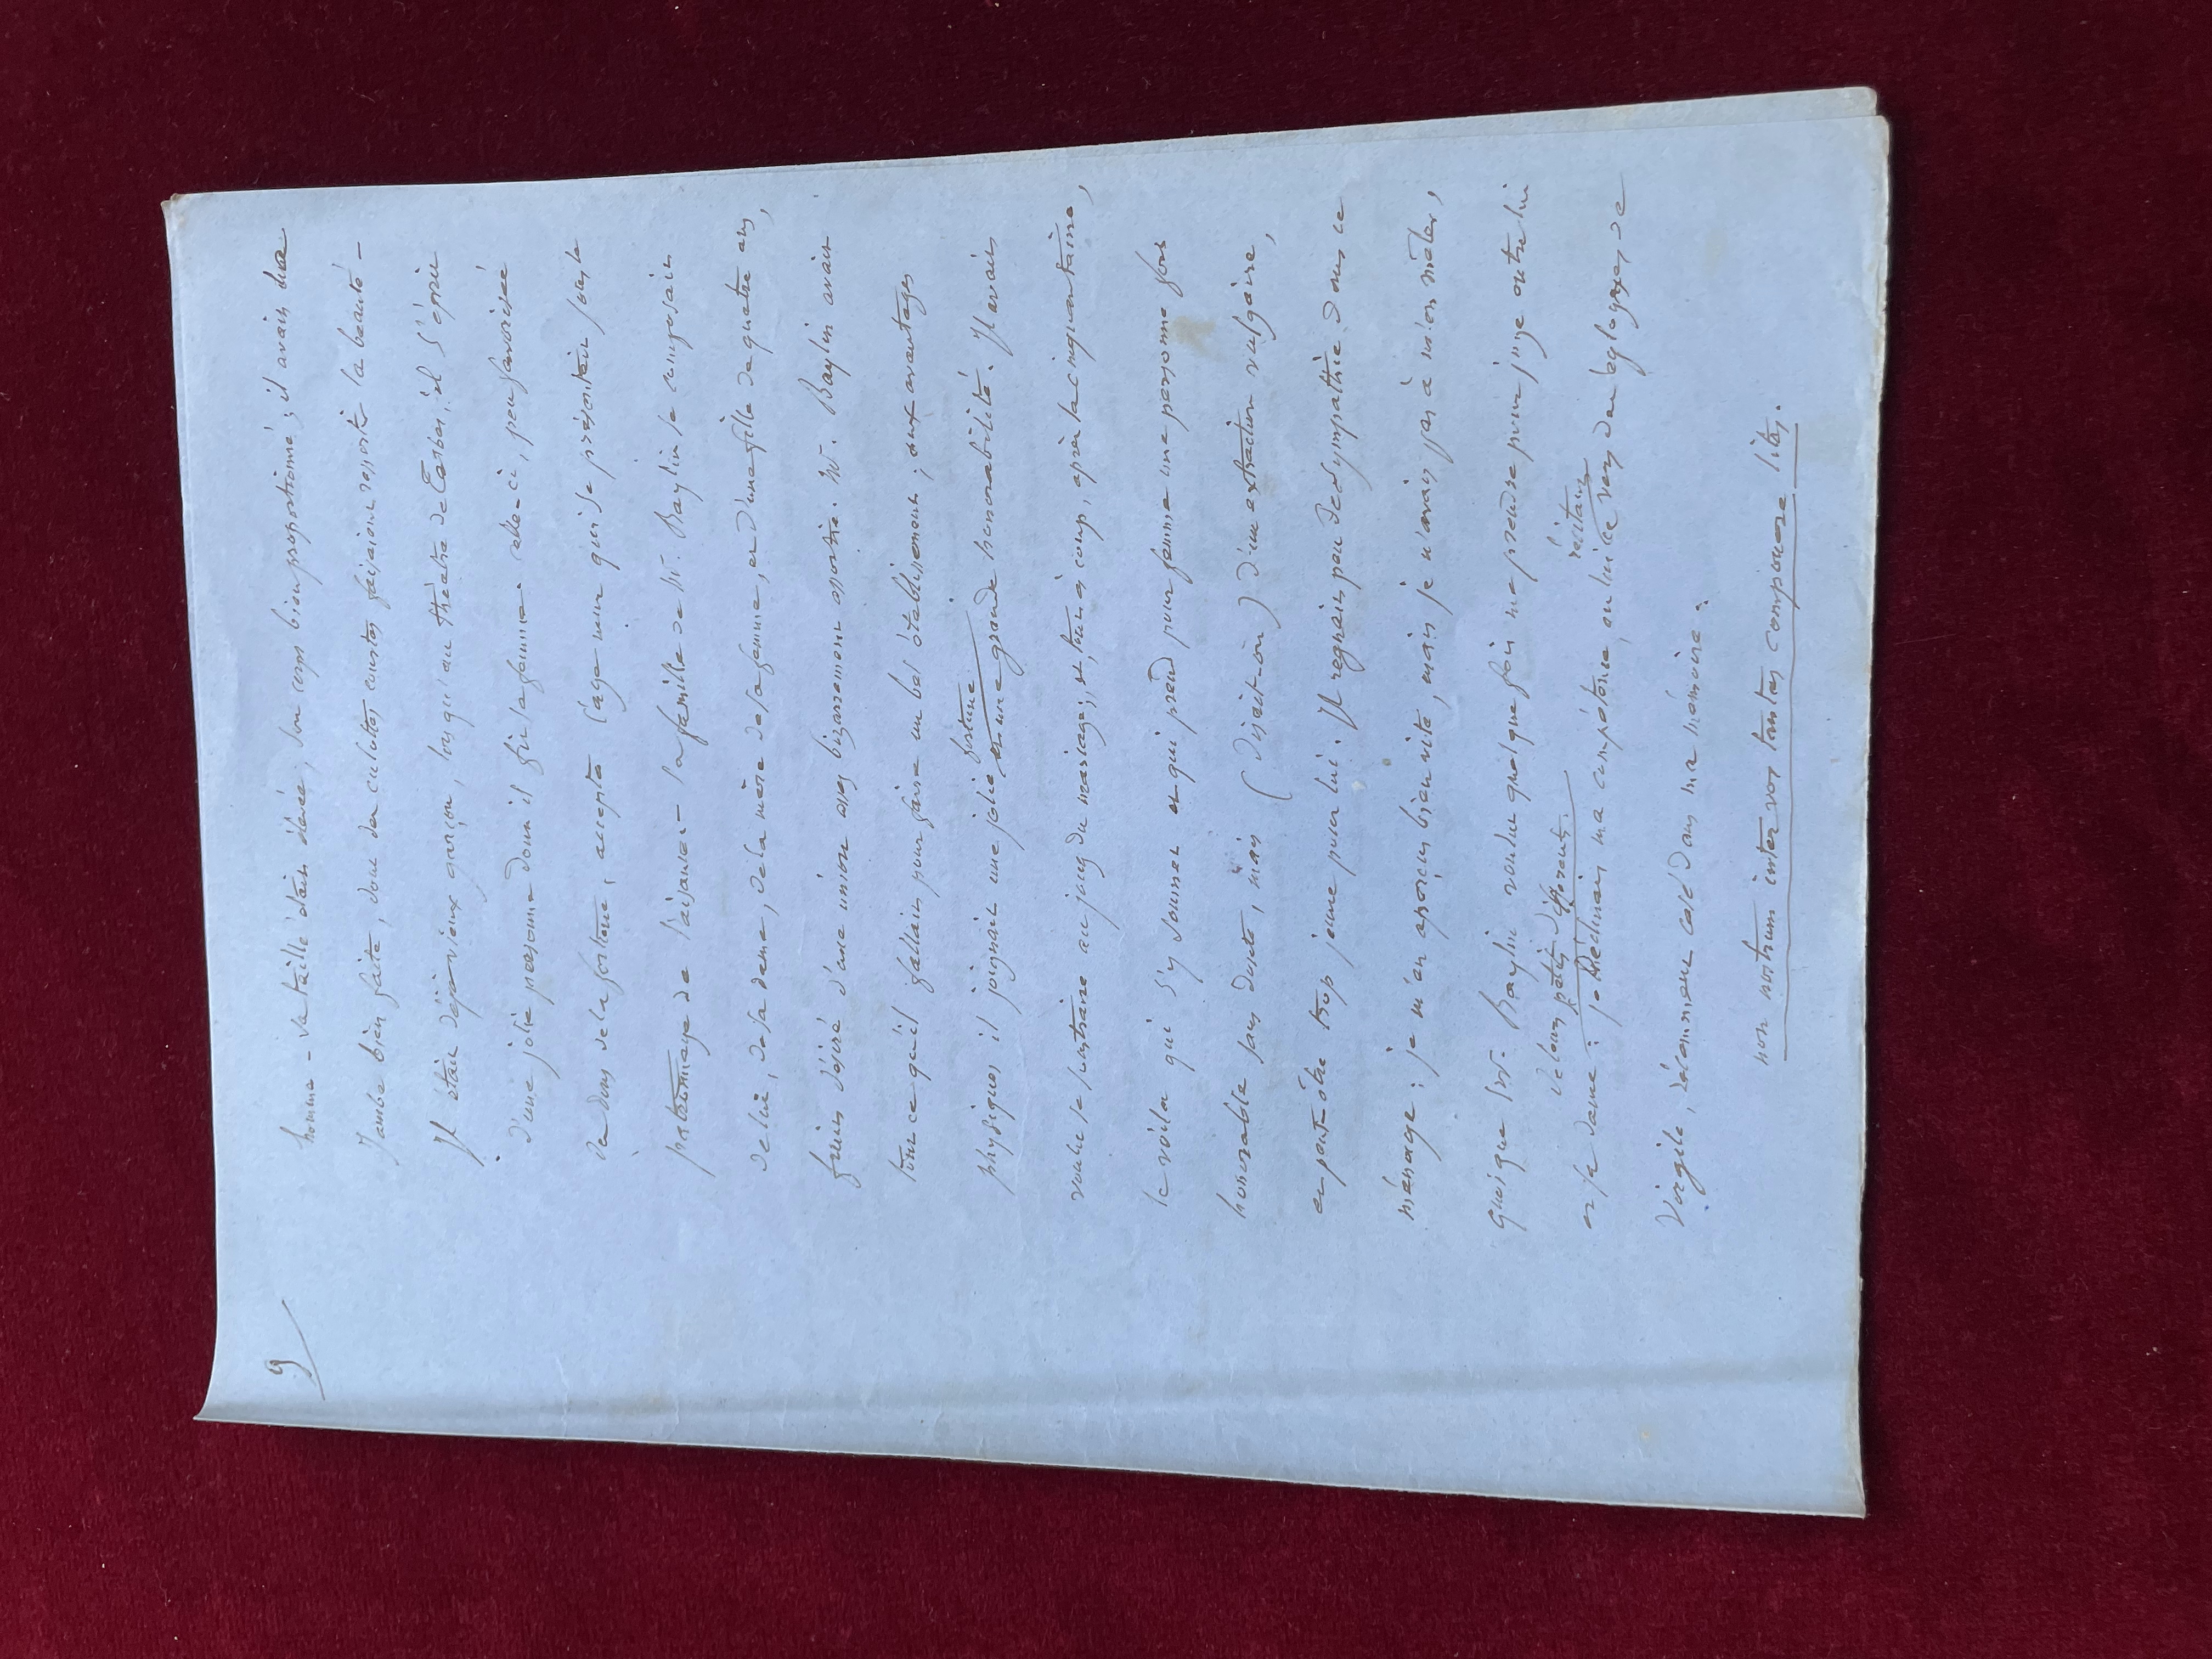 9
homme - sa taille était élevée, son corps bien proportionné ; il avait une
Jambe bien faite, dont des culottes courtes faisaient ressortir la beauté -
Il était déjà vieux garçon, lorsqu'au théatre de Tarbes, il s'éprit
d'une jolie personne dont il fit sa femme - celle-ci, peu favorisée
des dons de la fortune, accepta l'age mur qui se présentait sous le
patronnage de l'aisance - la famille de Mr. Baylin se composait
de lui, de sa dame, de la mère de sa femme, et d'une fille de quatre ans,
fruit désiré d'une union assez bizarrement assortie. Mr. Baylin avait
tout ce qu'il fallait pour faire un bel établissement ; aux avantages
physiques il joignait une jolie fortune
et une grande honorabilité. Il avait
voulu se soustraire au joug du mariage ; et, tout à coup, après la cinquantaine,
le voila qui s'y soumet et qui prend pour femme une personne fort
honorable sans doute, mais (disait-on) d'une extraction vulgaire,
et peut-être trop jeune pour lui. Il regnait peu de sympathie dans ce
ménage : je m'en aperçus bien vite, mais je n'avais pas à m'en mêler,
quoique Mr. Baylin voulut quelquefois me prendre pour juge entre lui
de leurs petits différents. récitant
et sa dame : je déclinais ma compétence, en lui ce vers des églogues de
Virgile, récemment casé dans ma mémoire :
non nostrum inter vos tantas componere lites.